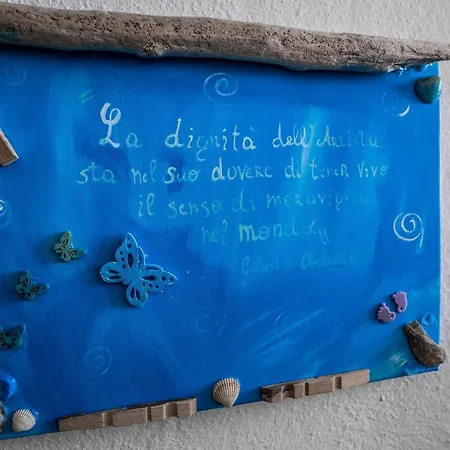 La dignità dell'Artista
sta nel suo dovere di tener vivo
il senso di meraviglia
nel mondo,,